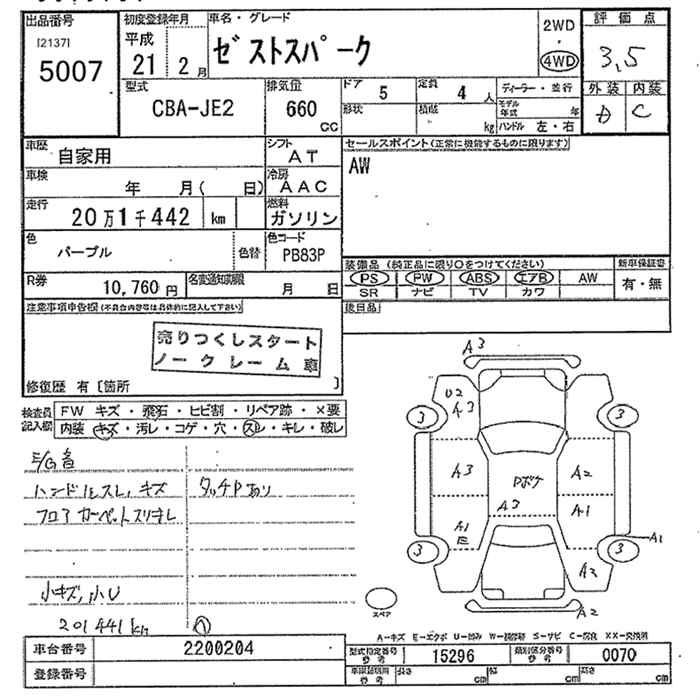 出品番号
[2137]
5007
初度登録年月
平成
21 2月
車名・グレード
ゼストスパーク
2WD
・
4WD
評価点
3,5
外装 内装
D C
型式
CBA-JE2
排気量
660
CC
ドア 5
定員 4 人
ディーラー・並行
形状
積載 kg
モデル年式 年
ハンドル 左・右
車歴 自家用
シフト AT
車検 年 月( 日)
冷房 AAC
走行 20万1千442 km
燃料 ガソリン
色 パープル
色替
色コード PB83P
R券 10,760円
名変通知期限 月 日
セールスポイント(正常に機能するものに限ります)
AW
装備品(純正品に限り○をつけてください)
PS PW ABS エアB AW
SR ナビ TV カワ
新車保証書
有・無
後日品
注意事項申告欄(不具合内容等は具体的に記入して下さい)
売りつくしスタート
ノークレーム車
修復歴 有〔箇所 〕
検査員記入欄
FW キズ・飛石・ヒビ割・リペア跡・×要
内装 キズ・汚レ・コゲ・穴・スレ・キレ・破レ
E/G音
ハンドルスレ,キズ
タッチPあり
フロアカーペットスリキレ
小キズ,小U
201441km
A3
U2
A3
3
3
A3
Pボケ
A2
A2
A1
E
A1
A1
3
3
A2
A2
スペア
A-キズ E-エクボ U-凹み W-補修跡 S-サビ C-腐食 XX-交換済
車台番号 2200204
登録番号
型式指定番号 参考 15296
類別区分番号 参考 0070
長さ cm
幅 cm
高さ cm